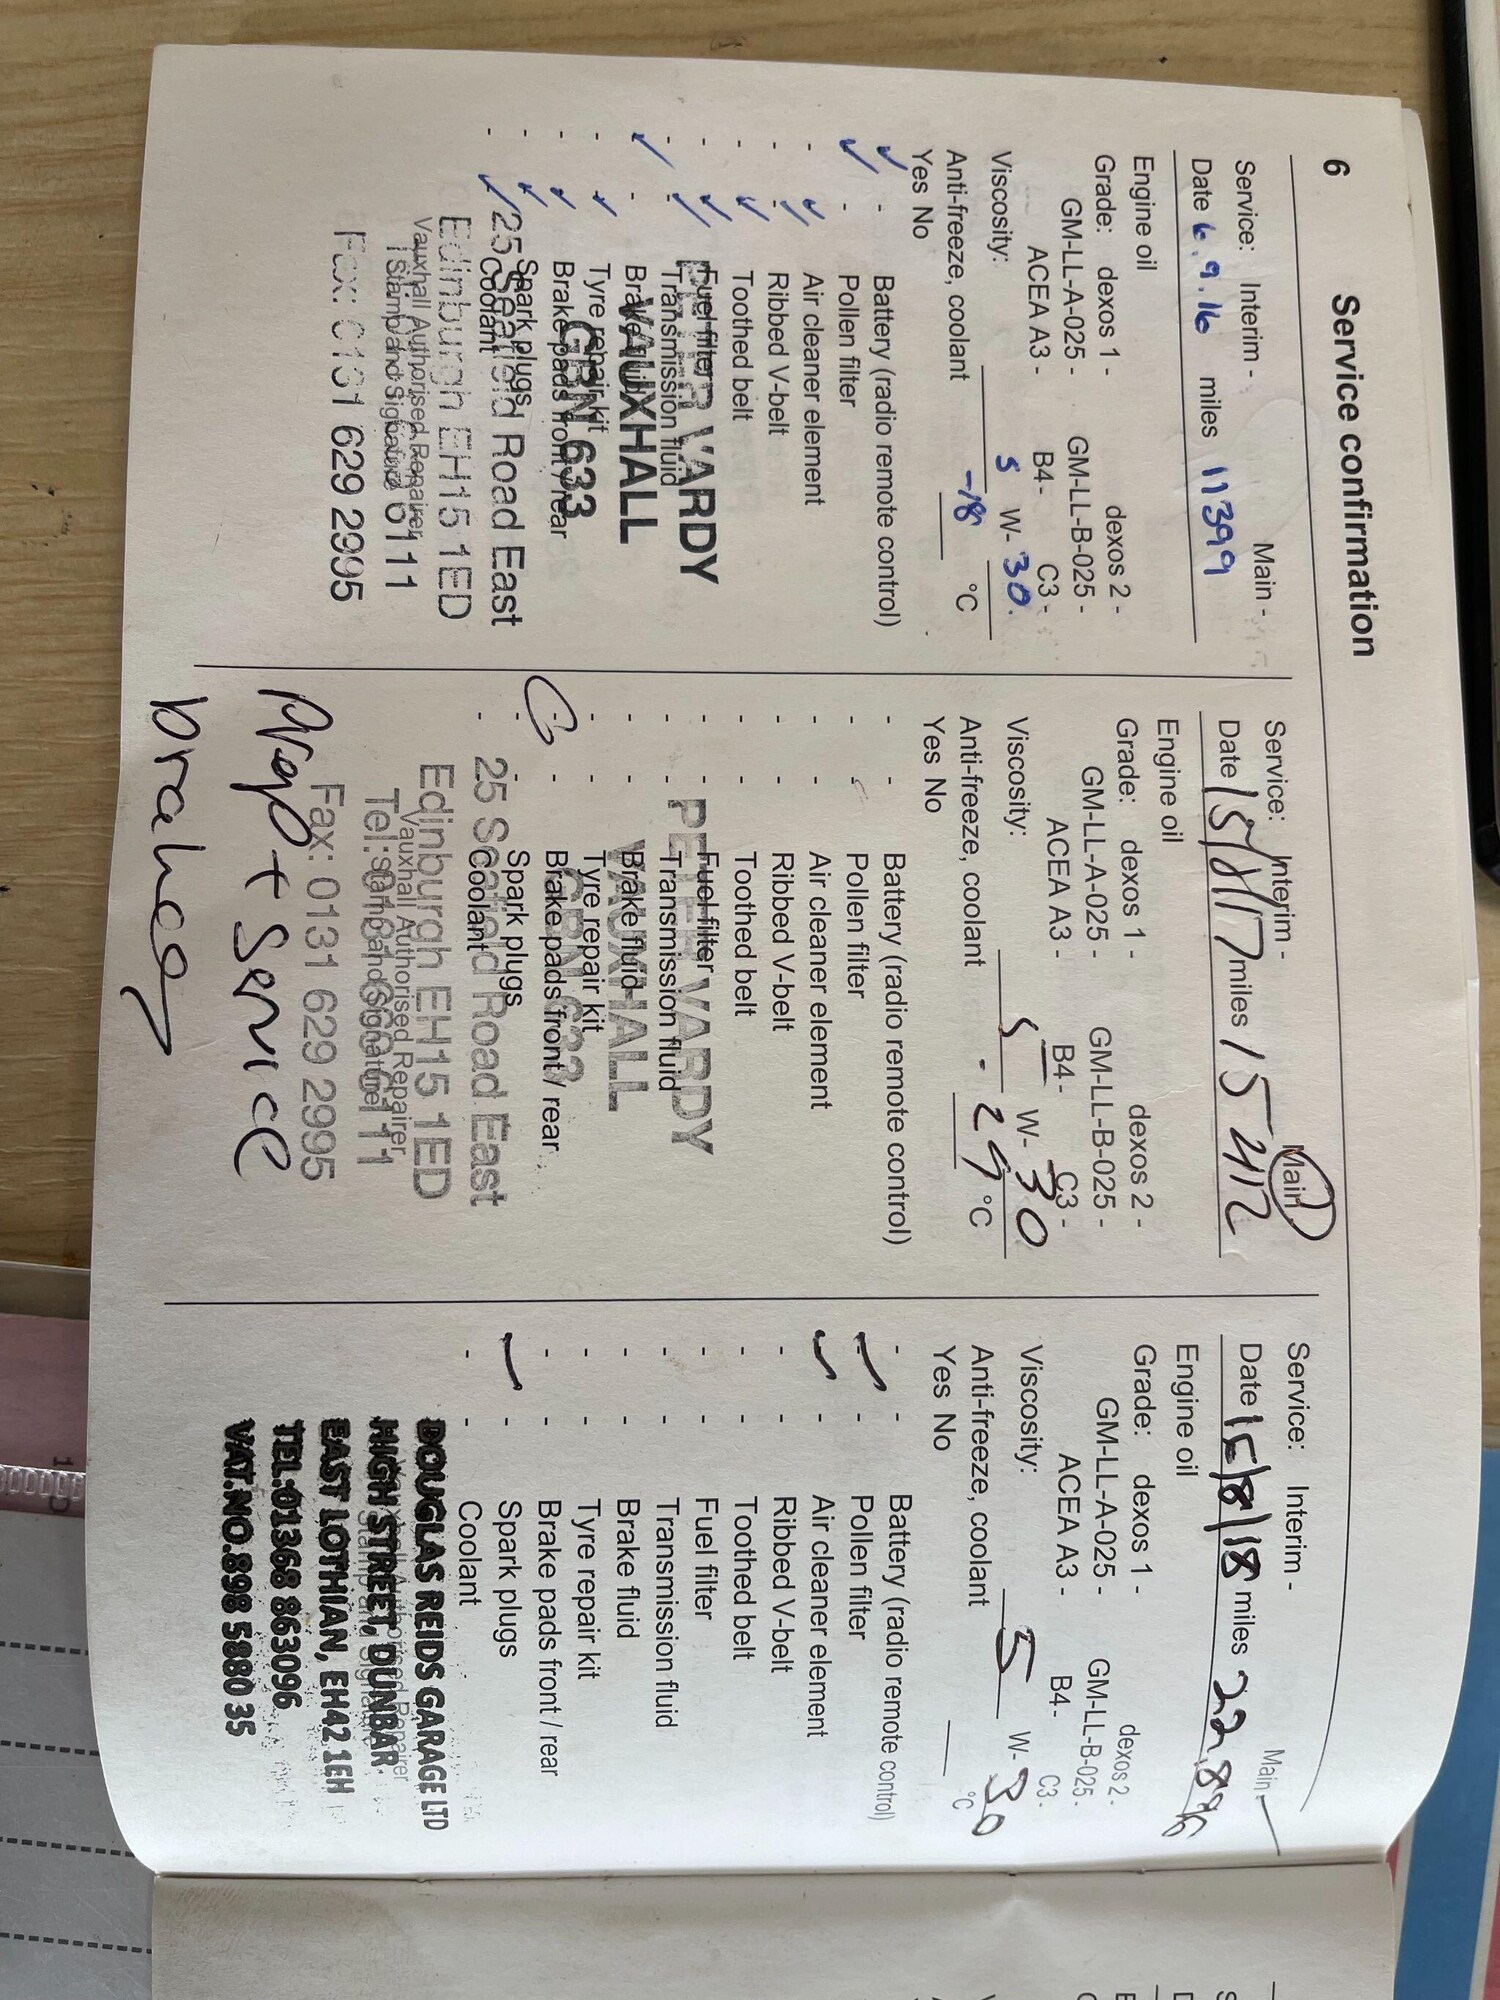 6 Service confirmation
Service: Interim - Main -
Date 6.9.16 miles 11399
Engine oil
Grade: dexos 1 - dexos 2 -
GM-LL-A-025 - GM-LL-B-025 -
ACEA A3 - B4 - C3 -
Viscosity: 5 W- 30.
Anti-freeze, coolant -18 °C
Yes No
Battery (radio remote control)
Pollen filter
Air cleaner element
Ribbed V-belt
Toothed belt
Fuel filter
Transmission fluid
Brake fluid
Tyre repair kit
Brake pads front / rear
Spark plugs
Coolant
PETER VARDY
VAUXHALL
GBN 633
25 Seafield Road East
Edinburgh EH15 1ED
Vauxhall Authorised Repairer
Stamp and Signature
Fax: 0131 629 2995
Service: Interim - Main
Date miles 15412
Engine oil
Grade: dexos 1 - dexos 2 -
GM-LL-A-025 - GM-LL-B-025 -
ACEA A3 - B4 - C3 -
Viscosity: 5 W- 30
Anti-freeze, coolant °C
Yes No
Battery (radio remote control)
Pollen filter
Air cleaner element
Ribbed V-belt
Toothed belt
Fuel filter
Transmission fluid
Brake fluid
Tyre repair kit
Brake pads front / rear
Spark plugs
Coolant
PETER VARDY
VAUXHALL
GBN 633
25 Seafield Road East
Edinburgh EH15 1ED
Vauxhall Authorised Repairer
Stamp and Signature
Fax: 0131 629 2995
+ Service
brakes
Service: Interim - Main -
Date 15/8/18 miles 22,896
Engine oil
Grade: dexos 1 - dexos 2 -
GM-LL-A-025 - GM-LL-B-025 -
ACEA A3 - B4 - C3 -
Viscosity: 5 W- 30
Anti-freeze, coolant °C
Yes No
Battery (radio remote control)
Pollen filter
Air cleaner element
Ribbed V-belt
Toothed belt
Fuel filter
Transmission fluid
Brake fluid
Tyre repair kit
Brake pads front / rear
Spark plugs
Coolant
DOUGLAS REIDS GARAGE LTD
HIGH STREET, DUNBAR
EAST LOTHIAN, EH42 1EH
TEL.01368 863096
VAT.NO.898 5880 35